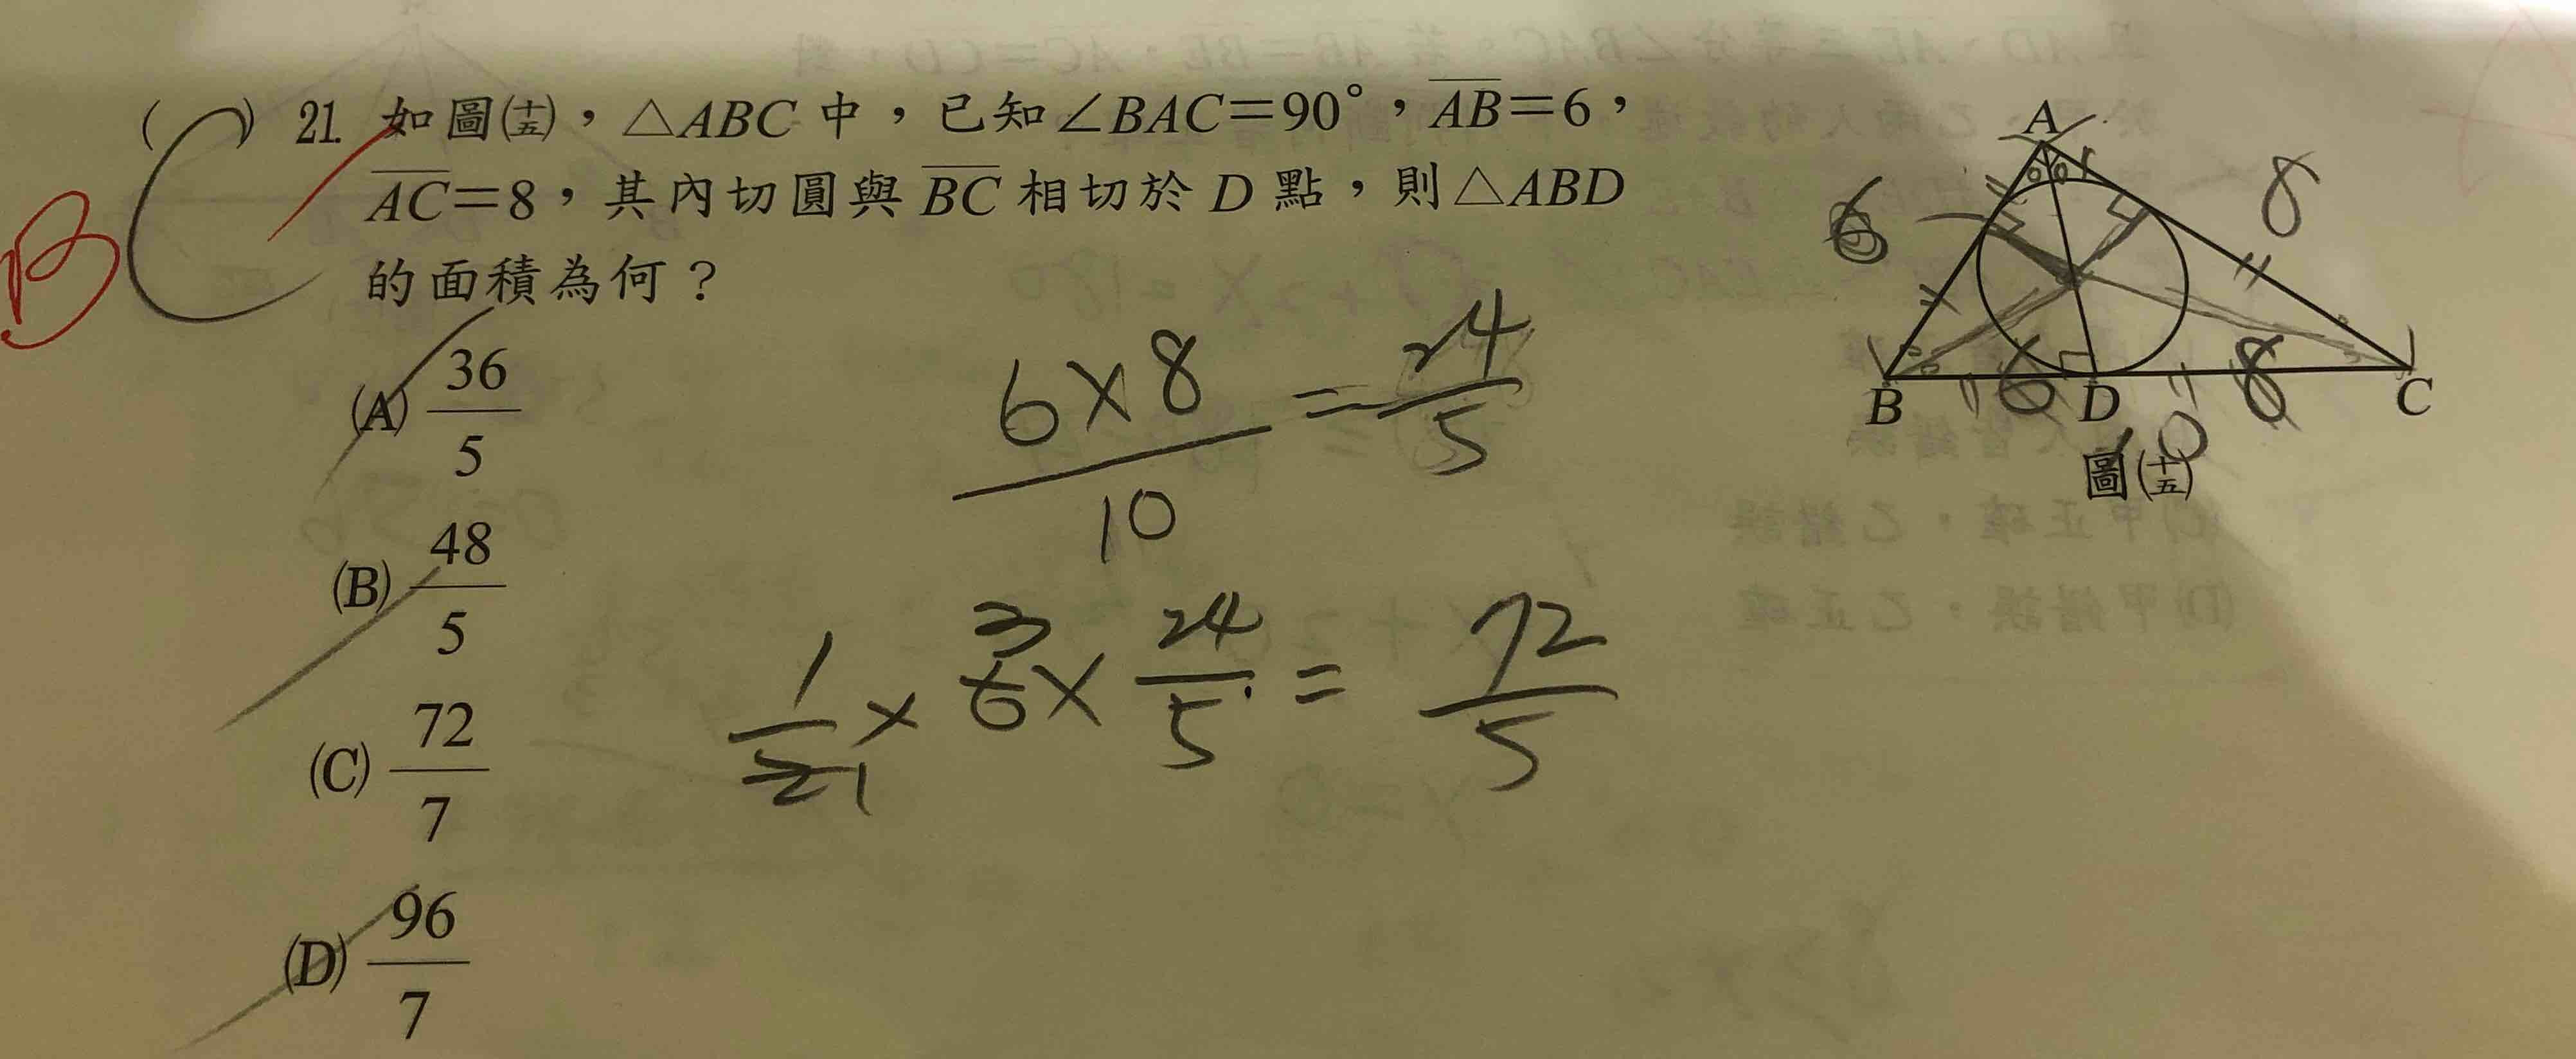 B
C
( ) 21. 如圖(十五),△ABC 中,已知∠BAC=90°,AB=6,
AC=8,其內切圓與 BC 相切於 D 點,則△ABD
的面積為何?
(A) 36/5
(B) 48/5
(C) 72/7
(D) 96/7
6×8/10 = 24/5
1/2 × 6 × 24/5 = 72/5
3
1
A
6
8
B
6
D
8
C
10
圖(十五)